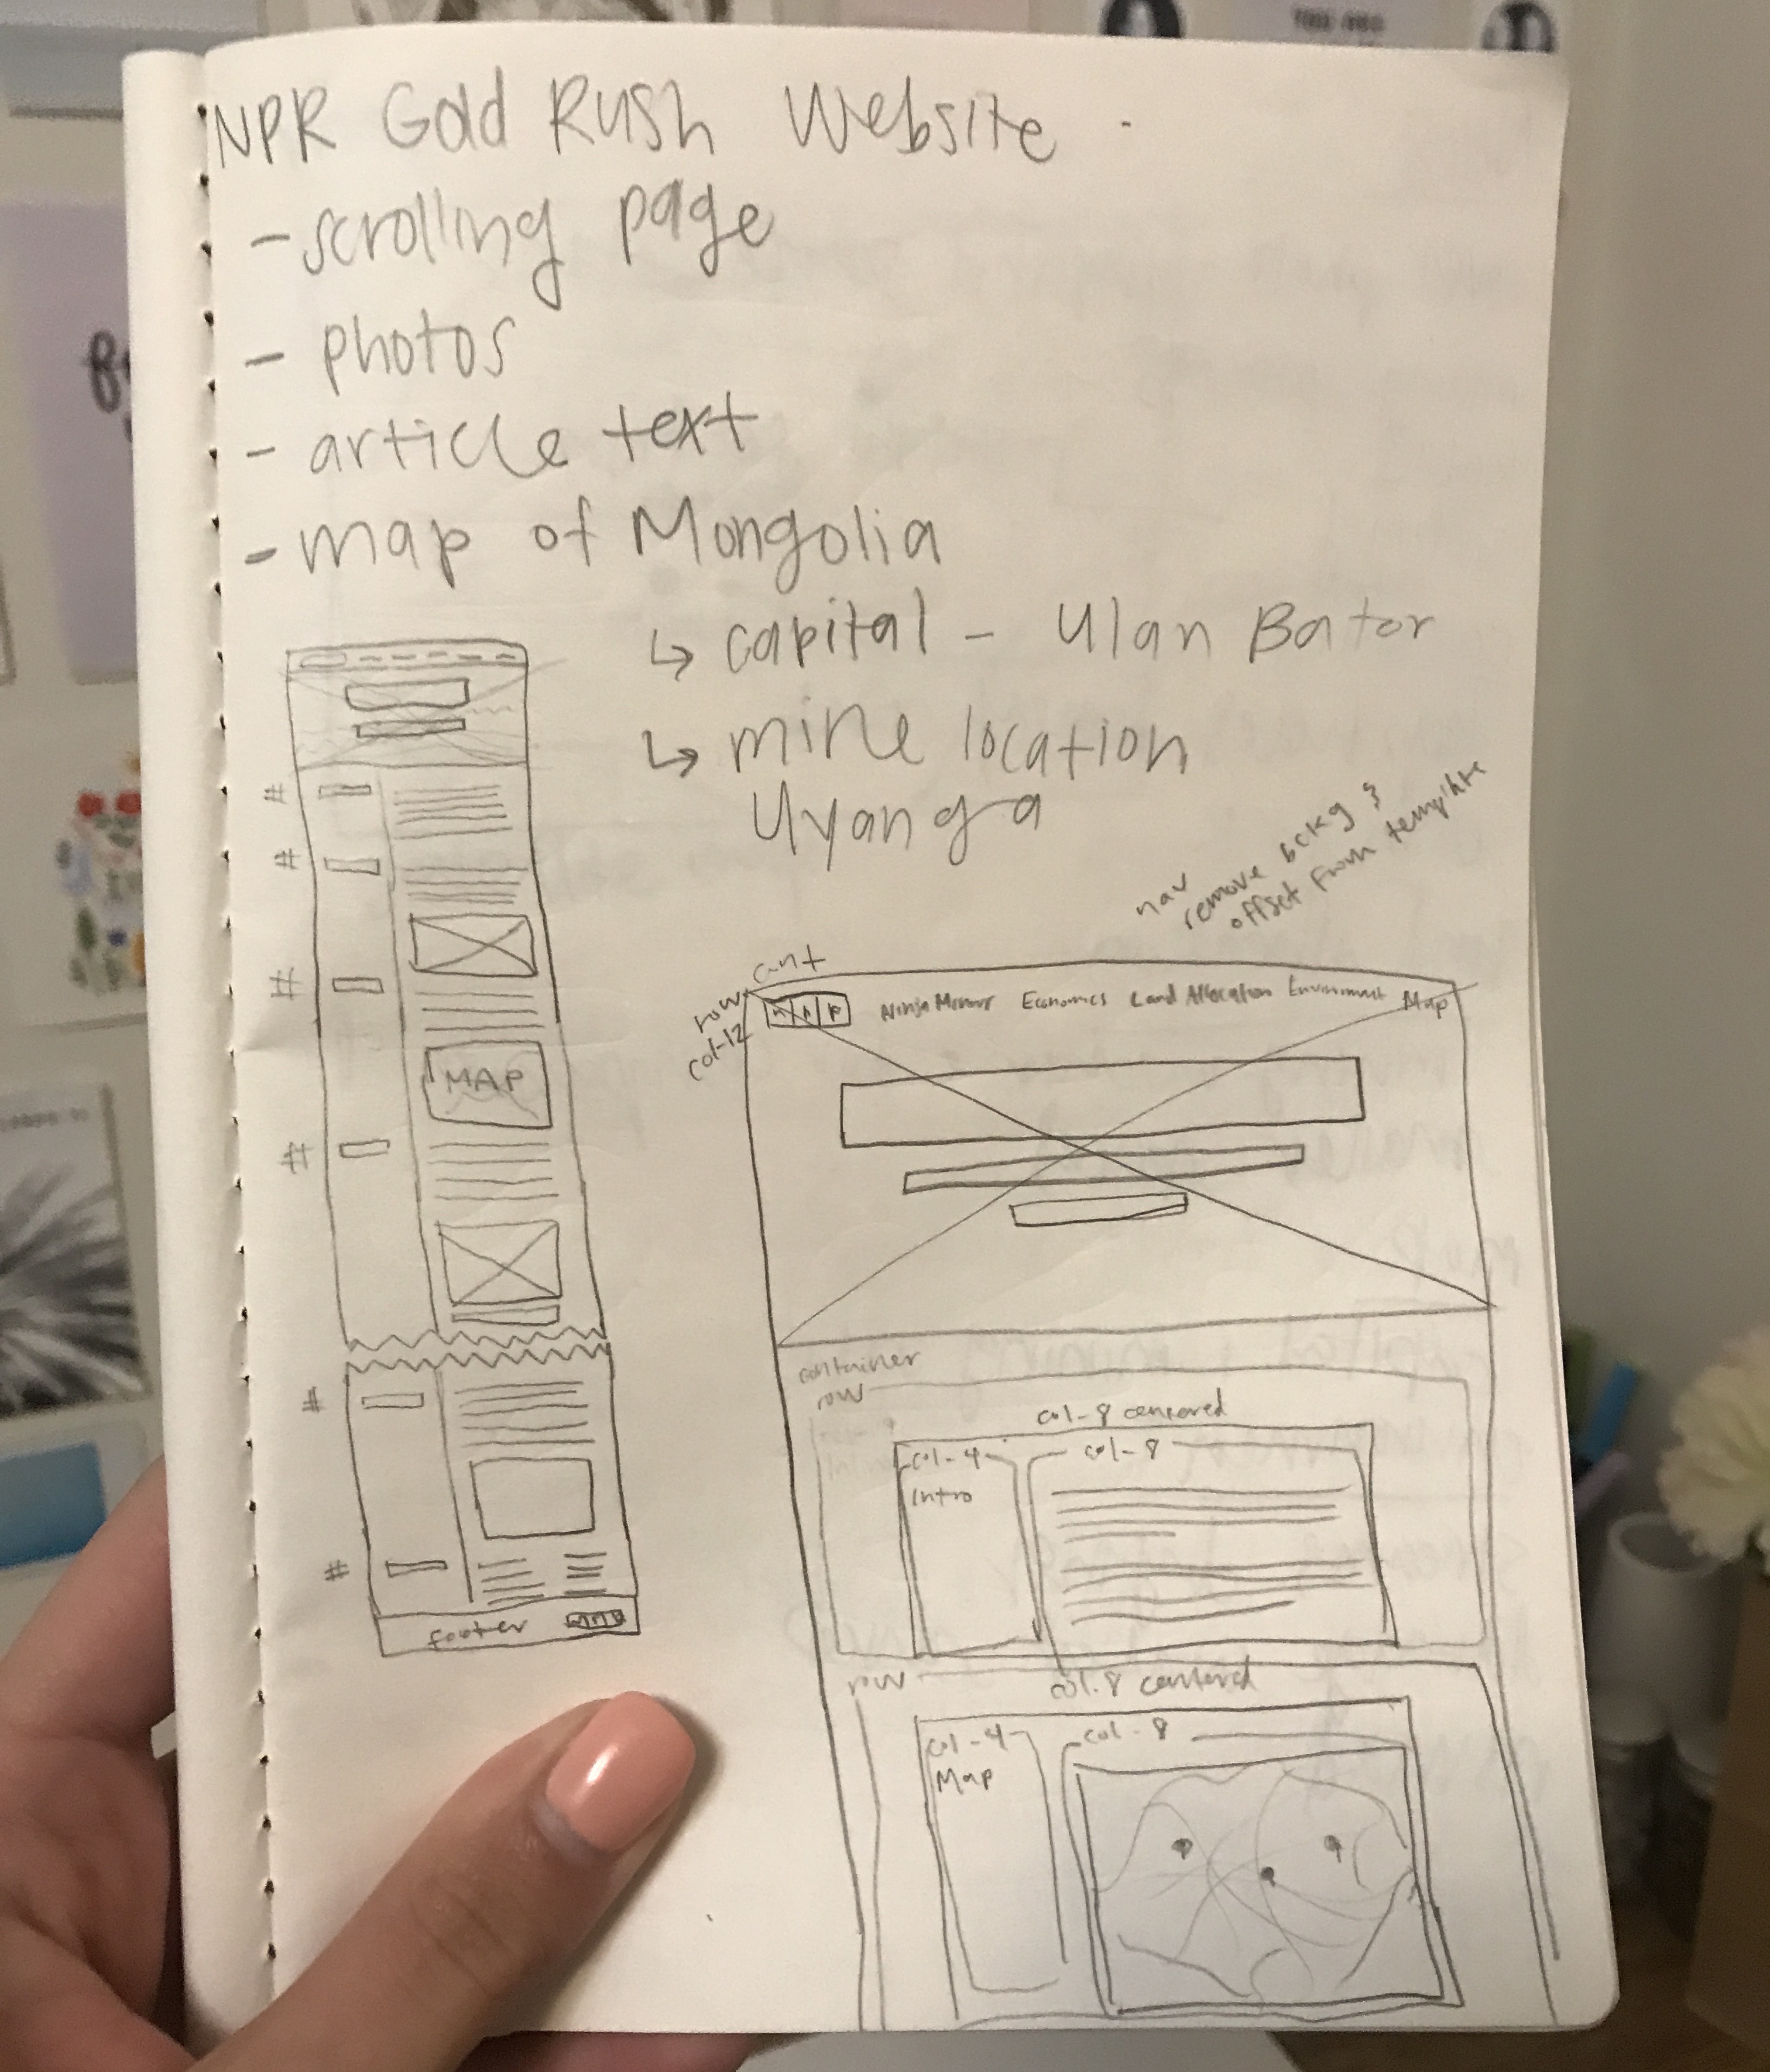 NPR Gold Rush Website
- scrolling page
- photos
- article text
- map of Mongolia
↳ capital - Ulan Bator
↳ mine location
Uyanga
nav
remove bckg &
offset from template
#
#
#
MAP
#
#
#
footer
npr
row
col-12
n p r
Economics
Land Allocation
Environment
Map
container
row
col-8 centered
col-4
Intro
col-8
row
col-8 centered
col-4
Map
col-8